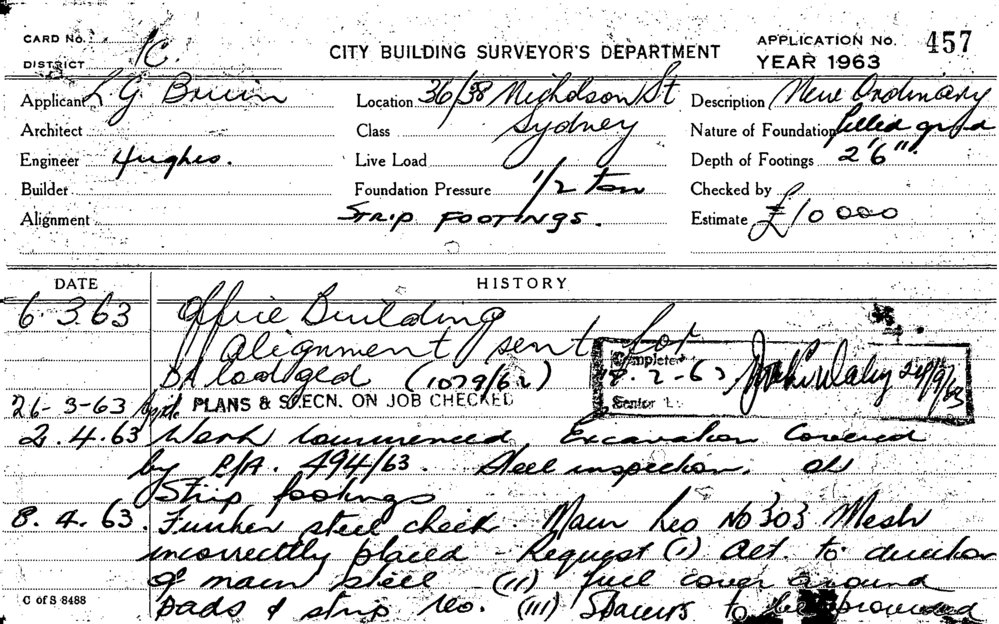 CARD No.
DISTRICT 1C.
CITY BUILDING SURVEYOR'S DEPARTMENT
APPLICATION No. 457
YEAR 1963
Applicant L G Bruin
Location 36/38 Nicholson St
Sydney
Description New Ordinary
Architect
Class
Nature of Foundation filled grd
Engineer Hughes.
Live Load
Depth of Footings 2'6".
Builder
Foundation Pressure 1/2 ton
Checked by
Alignment
STRIP FOOTINGS.
Estimate £10000
DATE
HISTORY
6.3.63 Office Building
Alignment sent for
DA lodged (1079/62)
Completed
2-63 24/9/63
Senior
26-3-63 PLANS & SPECN. ON JOB CHECKED
2.4.63 Work commenced, Excavation Covered
by P/A. 494/63. Steel inspection. on
Strip footings
8.4.63. Further steel check. Main Reo No 303 Mesh
incorrectly placed - Request (i) Alt. to direction
of main steel - (ii) full cover around
pads & strip reo. (iii) Spacers to be provided
C of S 8488